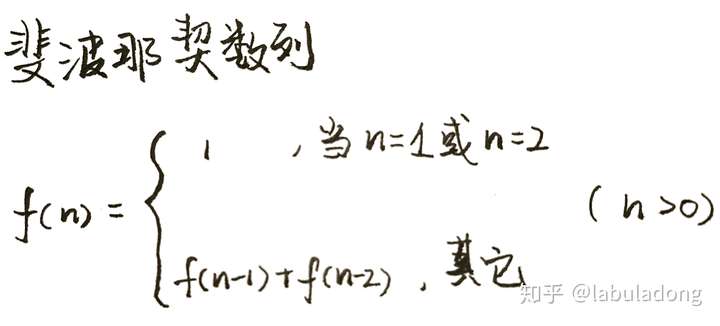 斐波那契数列
1 , 当 n=1或 n=2
f(n) = { ( n >0)
f(n-1)+f(n-2) , 其它
知乎 @labuladong